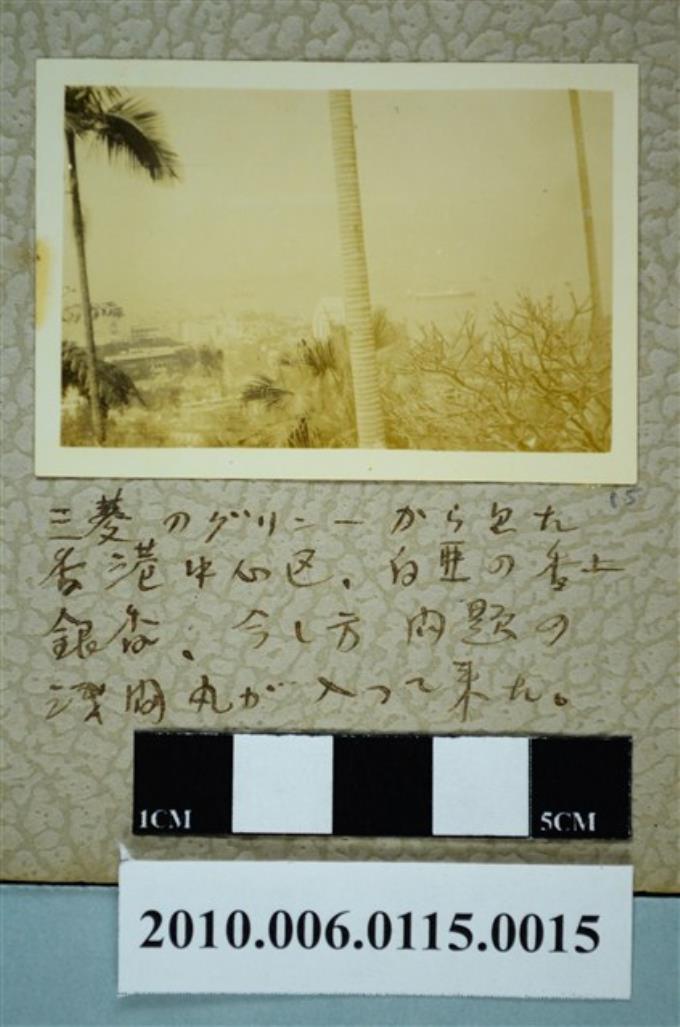 15
三菱のグリンーから見た
香港中心区、白亜の香上
銀行、今し方問題の
浅間丸が入つて来た。
1CM
5CM
2010.006.0115.0015